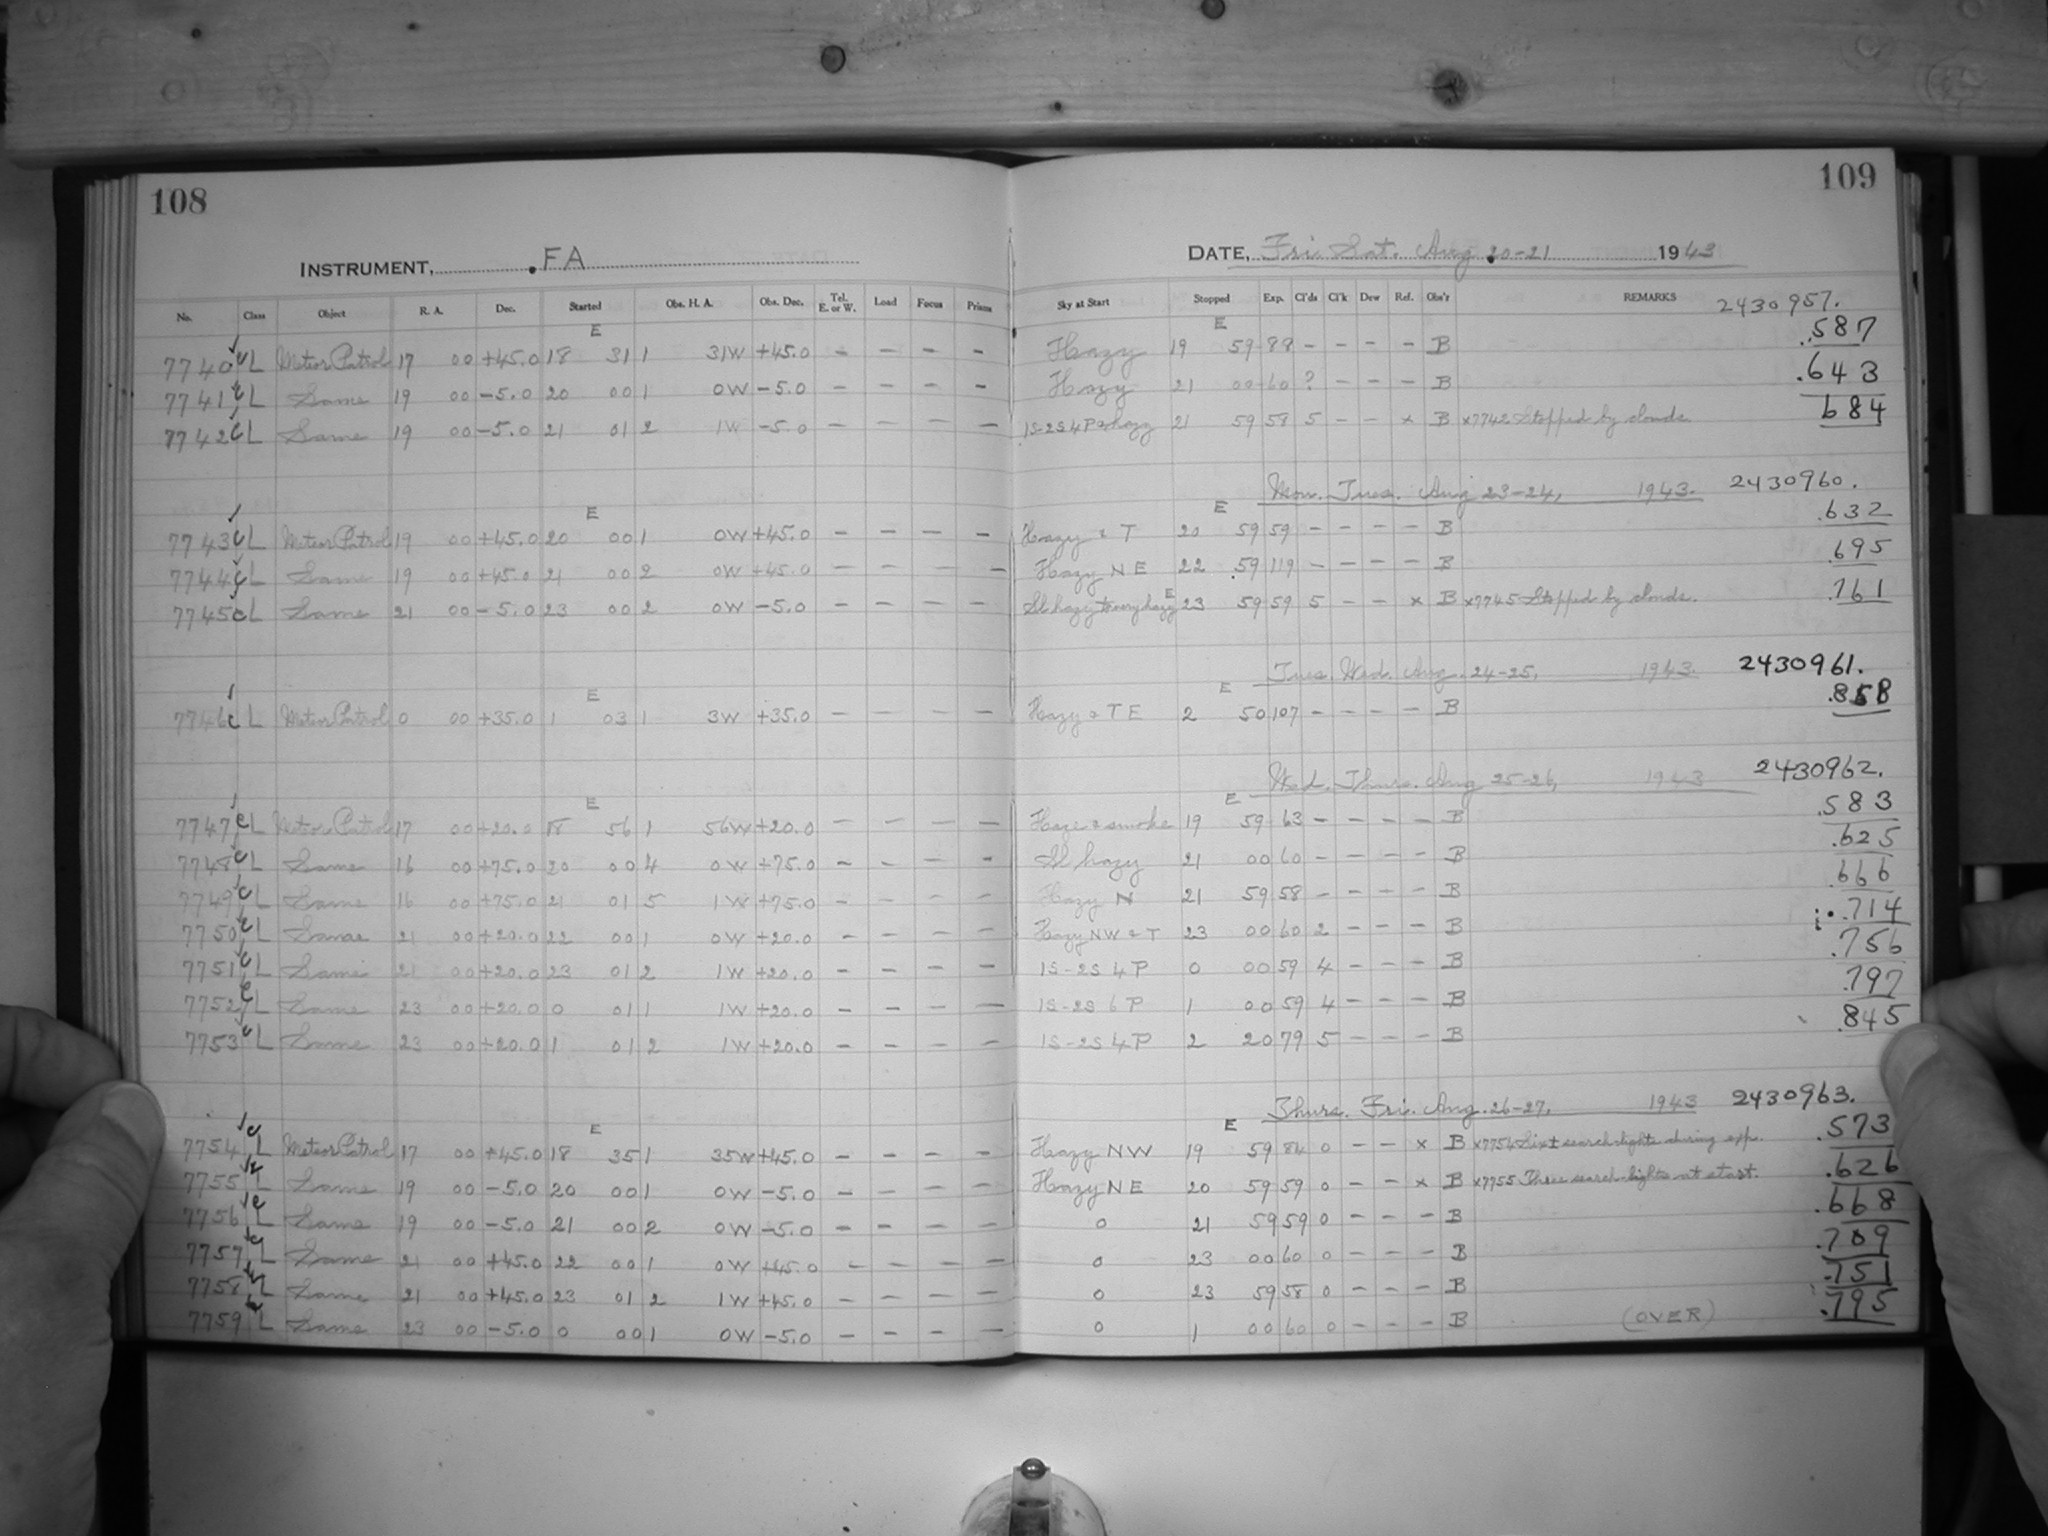 108
109
INSTRUMENT, FA
DATE, Fri. Sat. Aug. 20-21 1943
No. Class Object R. A. Dec. Started Obs. H. A. Obs. Dec. Tel. E. or W. Load Focus Prisms Sky at Start Stopped Exp. Cl'ds Cl'k Dew Ref. Obs'r REMARKS 2430957.
E E
7740 c L Meteor Patrol 17 00 +45.0 18 31 1 31W +45.0 - - - - Hazy 19 59 88 - - - - B .587
7741 c L Same 19 00 -5.0 20 00 1 0W -5.0 - - - - Hazy 21 00 60 ? - - - B .643
7742 c L Same 19 00 -5.0 21 01 2 1W -5.0 - - - - 1S-2S 4P & hazy 21 59 58 5 - - x B x7742 Stopped by clouds. 684
Mon. Tues. Aug 23-24, 1943. 2430960.
E E
7743 c L Meteor Patrol 19 00 +45.0 20 00 1 0W +45.0 - - - - Hazy & T 20 59 59 - - - - B .632
7744 c L Same 19 00 +45.0 21 00 2 0W +45.0 - - - - Hazy NE 22 59 119 - - - - B .695
7745 c L Same 21 00 -5.0 23 00 2 0W -5.0 - - - - Sl hazy to very hazy E 23 59 59 5 - - x B x7745 Stopped by clouds. .761
Tues. Wed. Aug. 24-25, 1943. 2430961.
E E
7746 c L Meteor Patrol 0 00 +35.0 1 03 1 3W +35.0 - - - - Hazy & T E 2 50 107 - - - - B .858
Wed. Thurs. Aug 25-26, 1943 2430962.
E E
7747 c L Meteor Patrol 17 00 +20.0 18 56 1 56W +20.0 - - - - Haze & smoke 19 59 63 - - - - B .583
7748 c L Same 16 00 +75.0 20 00 4 0W +75.0 - - - - Sl hazy 21 00 60 - - - - B .625
7749 c L Same 16 00 +75.0 21 01 5 1W +75.0 - - - - Hazy N 21 59 58 - - - - B .666
7750 c L Same 21 00 +20.0 22 00 1 0W +20.0 - - - - Hazy NW & T 23 00 60 2 - - - B .714
7751 c L Same 21 00 +20.0 23 01 2 1W +20.0 - - - - 1S-2S 4P 0 00 59 4 - - - B .756
7752 c L Same 23 00 +20.0 0 01 1 1W +20.0 - - - - 1S-2S 6P 1 00 59 4 - - - B .797
7753 c L Same 23 00 +20.0 1 01 2 1W +20.0 - - - - 1S-2S 4P 2 20 79 5 - - - B .845
Thurs. Fri. Aug. 26-27, 1943 2430963.
E E
7754 c L Meteor Patrol 17 00 +45.0 18 35 1 35W +45.0 - - - - Hazy NW 19 59 84 0 - - x B x7754 search-lights during exp. .573
7755 c L Same 19 00 -5.0 20 00 1 0W -5.0 - - - - Hazy NE 20 59 59 0 - - x B x7755 Three search-lights at start. .626
7756 c L Same 19 00 -5.0 21 00 2 0W -5.0 - - - - 0 21 59 59 0 - - - B .668
7757 c L Same 21 00 +45.0 22 00 1 0W +45.0 - - - - 0 23 00 60 0 - - - B .709
7758 c L Same 21 00 +45.0 23 01 2 1W +45.0 - - - - 0 23 59 58 0 - - - B .751
7759 c L Same 23 00 -5.0 0 00 1 0W -5.0 - - - - 0 1 00 60 0 - - - B (OVER) .795